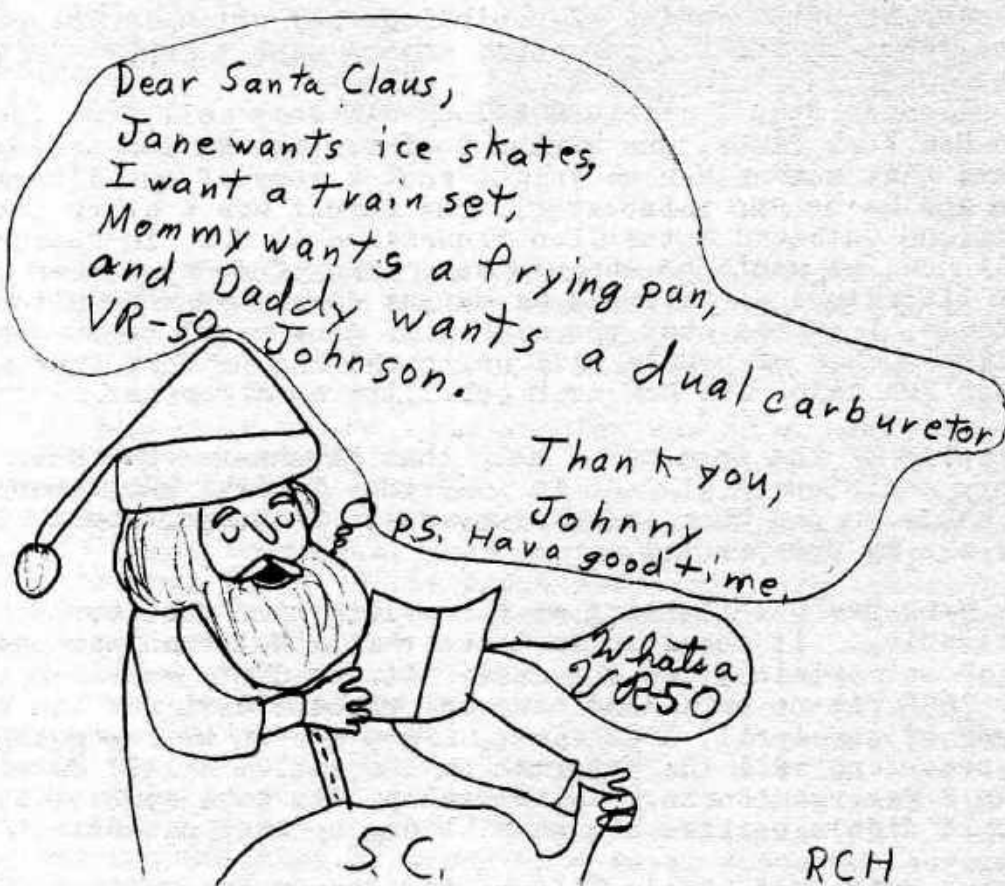 Dear Santa Claus,
Jane wants ice skates,
I want a train set,
Mommy wants a frying pan,
and Daddy wants a dual carburetor
VR-50 Johnson.
Thank you,
Johnny
P.S. Hava good time.
Whats a
VR50
S.C.
RCH